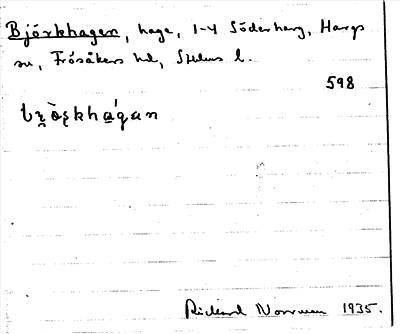 Björkhagen, hage, 1-4 Söderharg, Hargs
sn, Frösåkers hd, Sthlms l.
598
khágan
Rickard Norrman 1935.